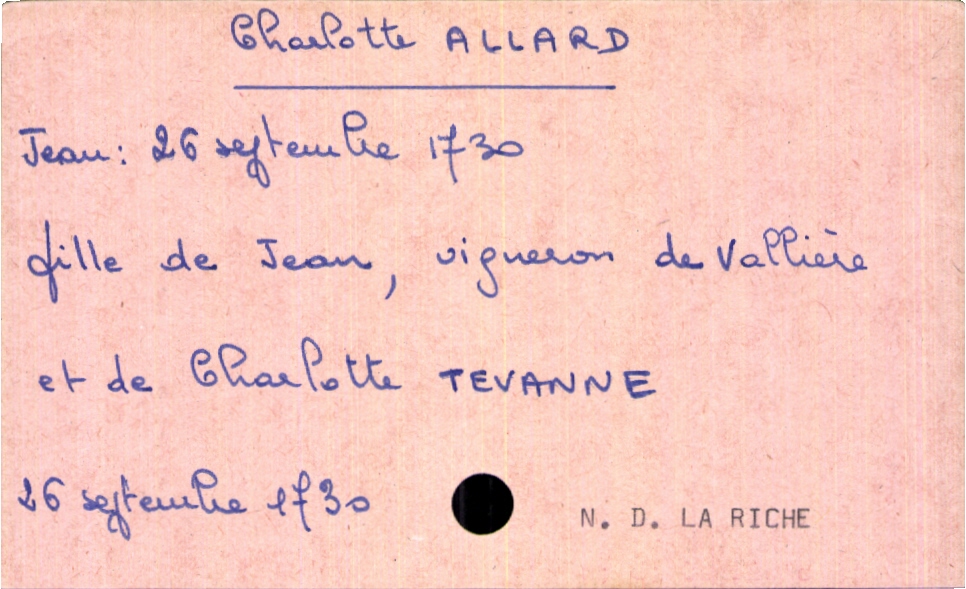 Charlotte ALLARD
Jean : 26 septembre 1730
fille de Jean, vigneron de Vallière
et de Charlotte TEVANNE
26 septembre 1730
N. D. LA RICHE